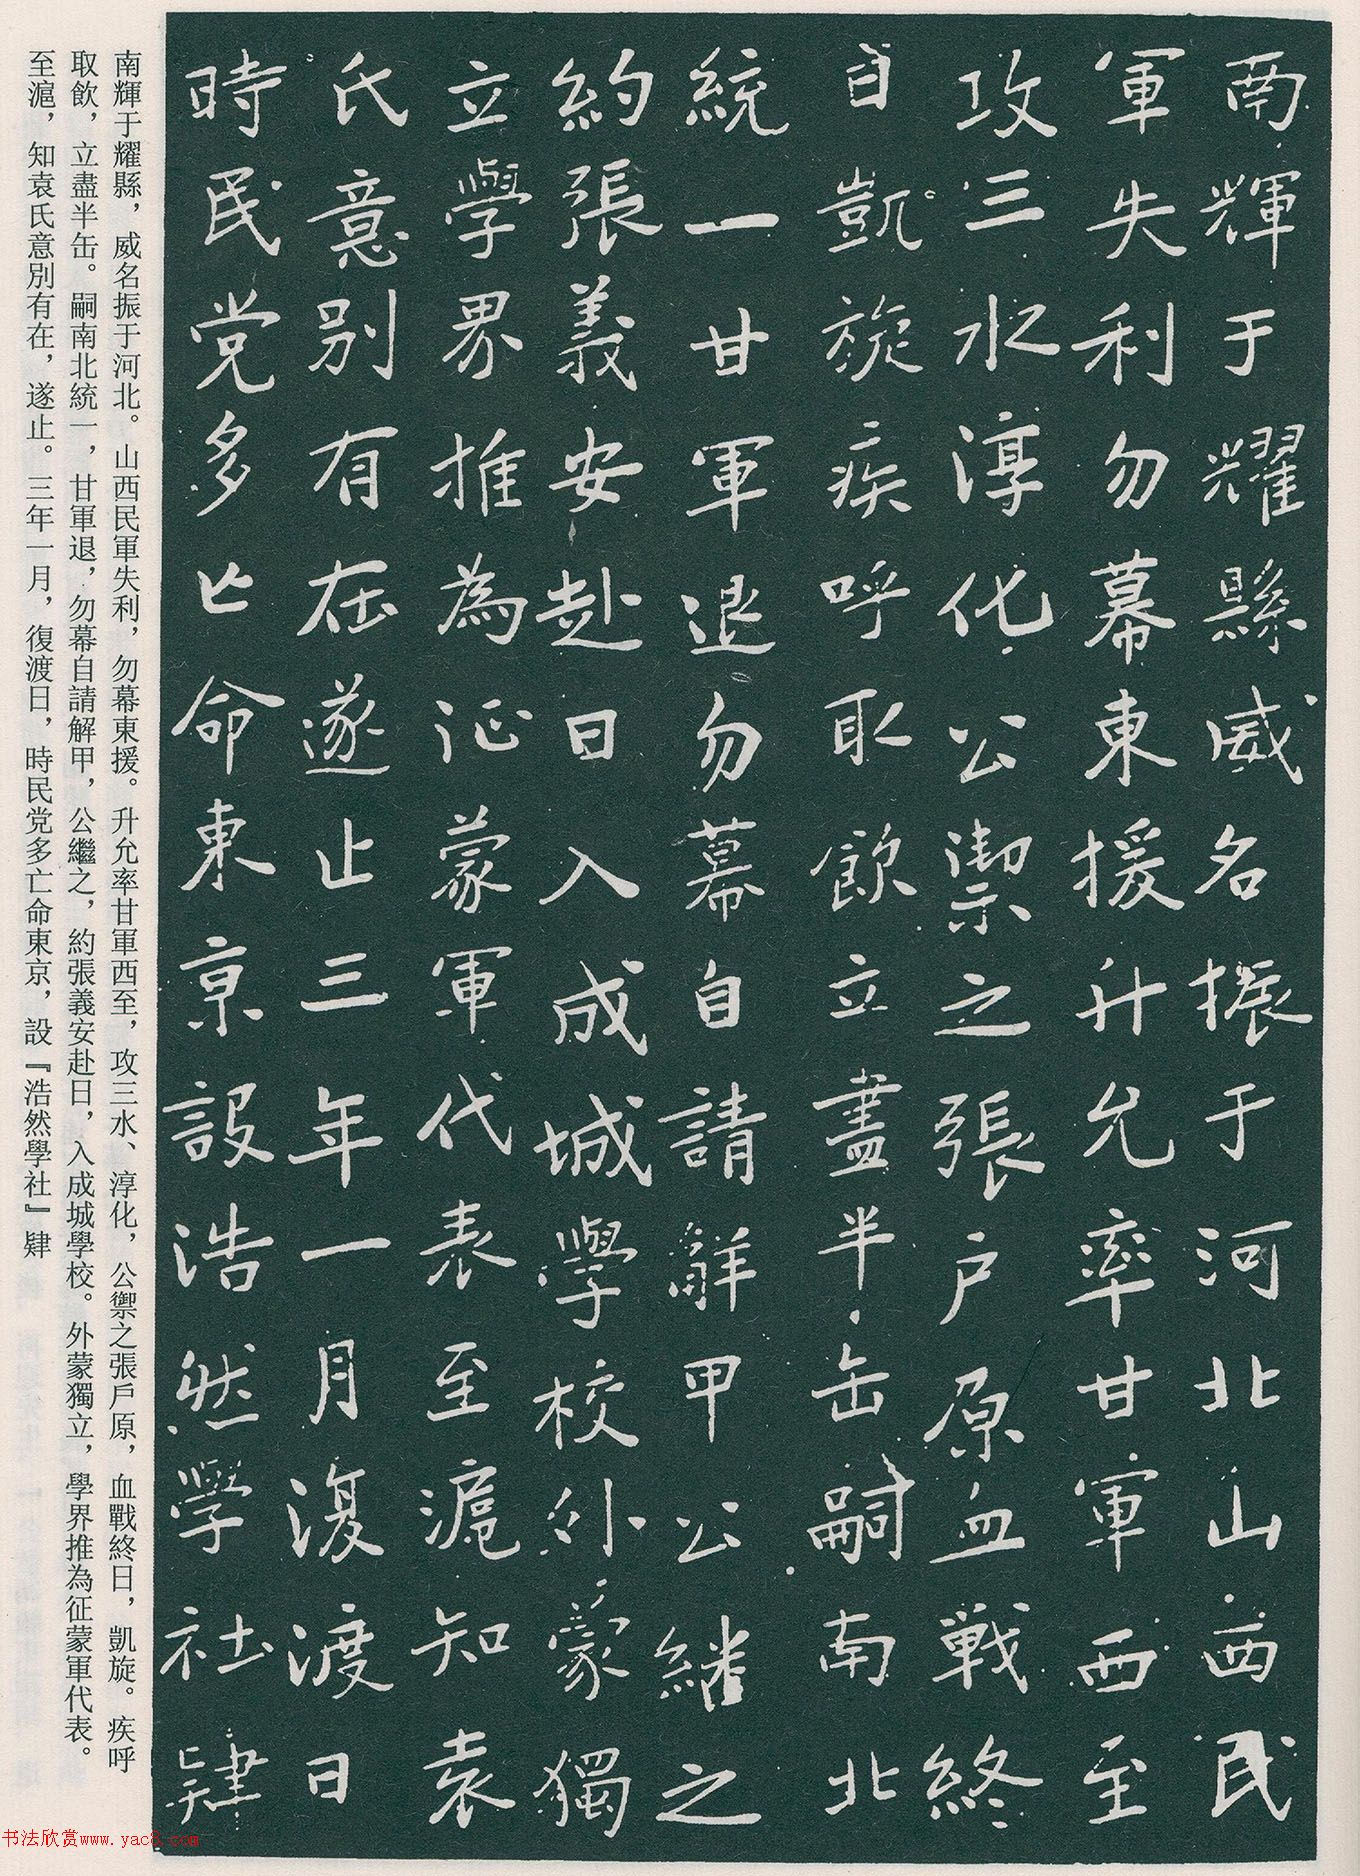 南輝于耀縣威名振于河北山西民
軍失利勿幕東援升允率甘軍西至
攻三水淳化公禦之張戶原血戰終
日凱旋疾呼取飲立盡半缶嗣南北
統一甘軍退勿幕自請解甲公繼之
約張義安赴日入成城學校外蒙獨
立學界推為征蒙軍代表至滬知袁
氏意别有在遂止三年一月復渡日
時民党多亡命東京設浩然學社肄
南輝于耀縣，威名振于河北。山西民軍失利，勿幕東援。升允率甘軍西至，攻三水、淳化，公禦之張戶原，血戰終日，凱旋。疾呼
取飲，立盡半缶。嗣南北統一，甘軍退，勿幕自請解甲，公繼之，約張義安赴日，入成城學校。外蒙獨立，學界推為征蒙軍代表。
至滬，知袁氏意別有在，遂止。三年一月，復渡日，時民党多亡命東京，設『浩然學社』肄
书法欣赏www.yac8.com